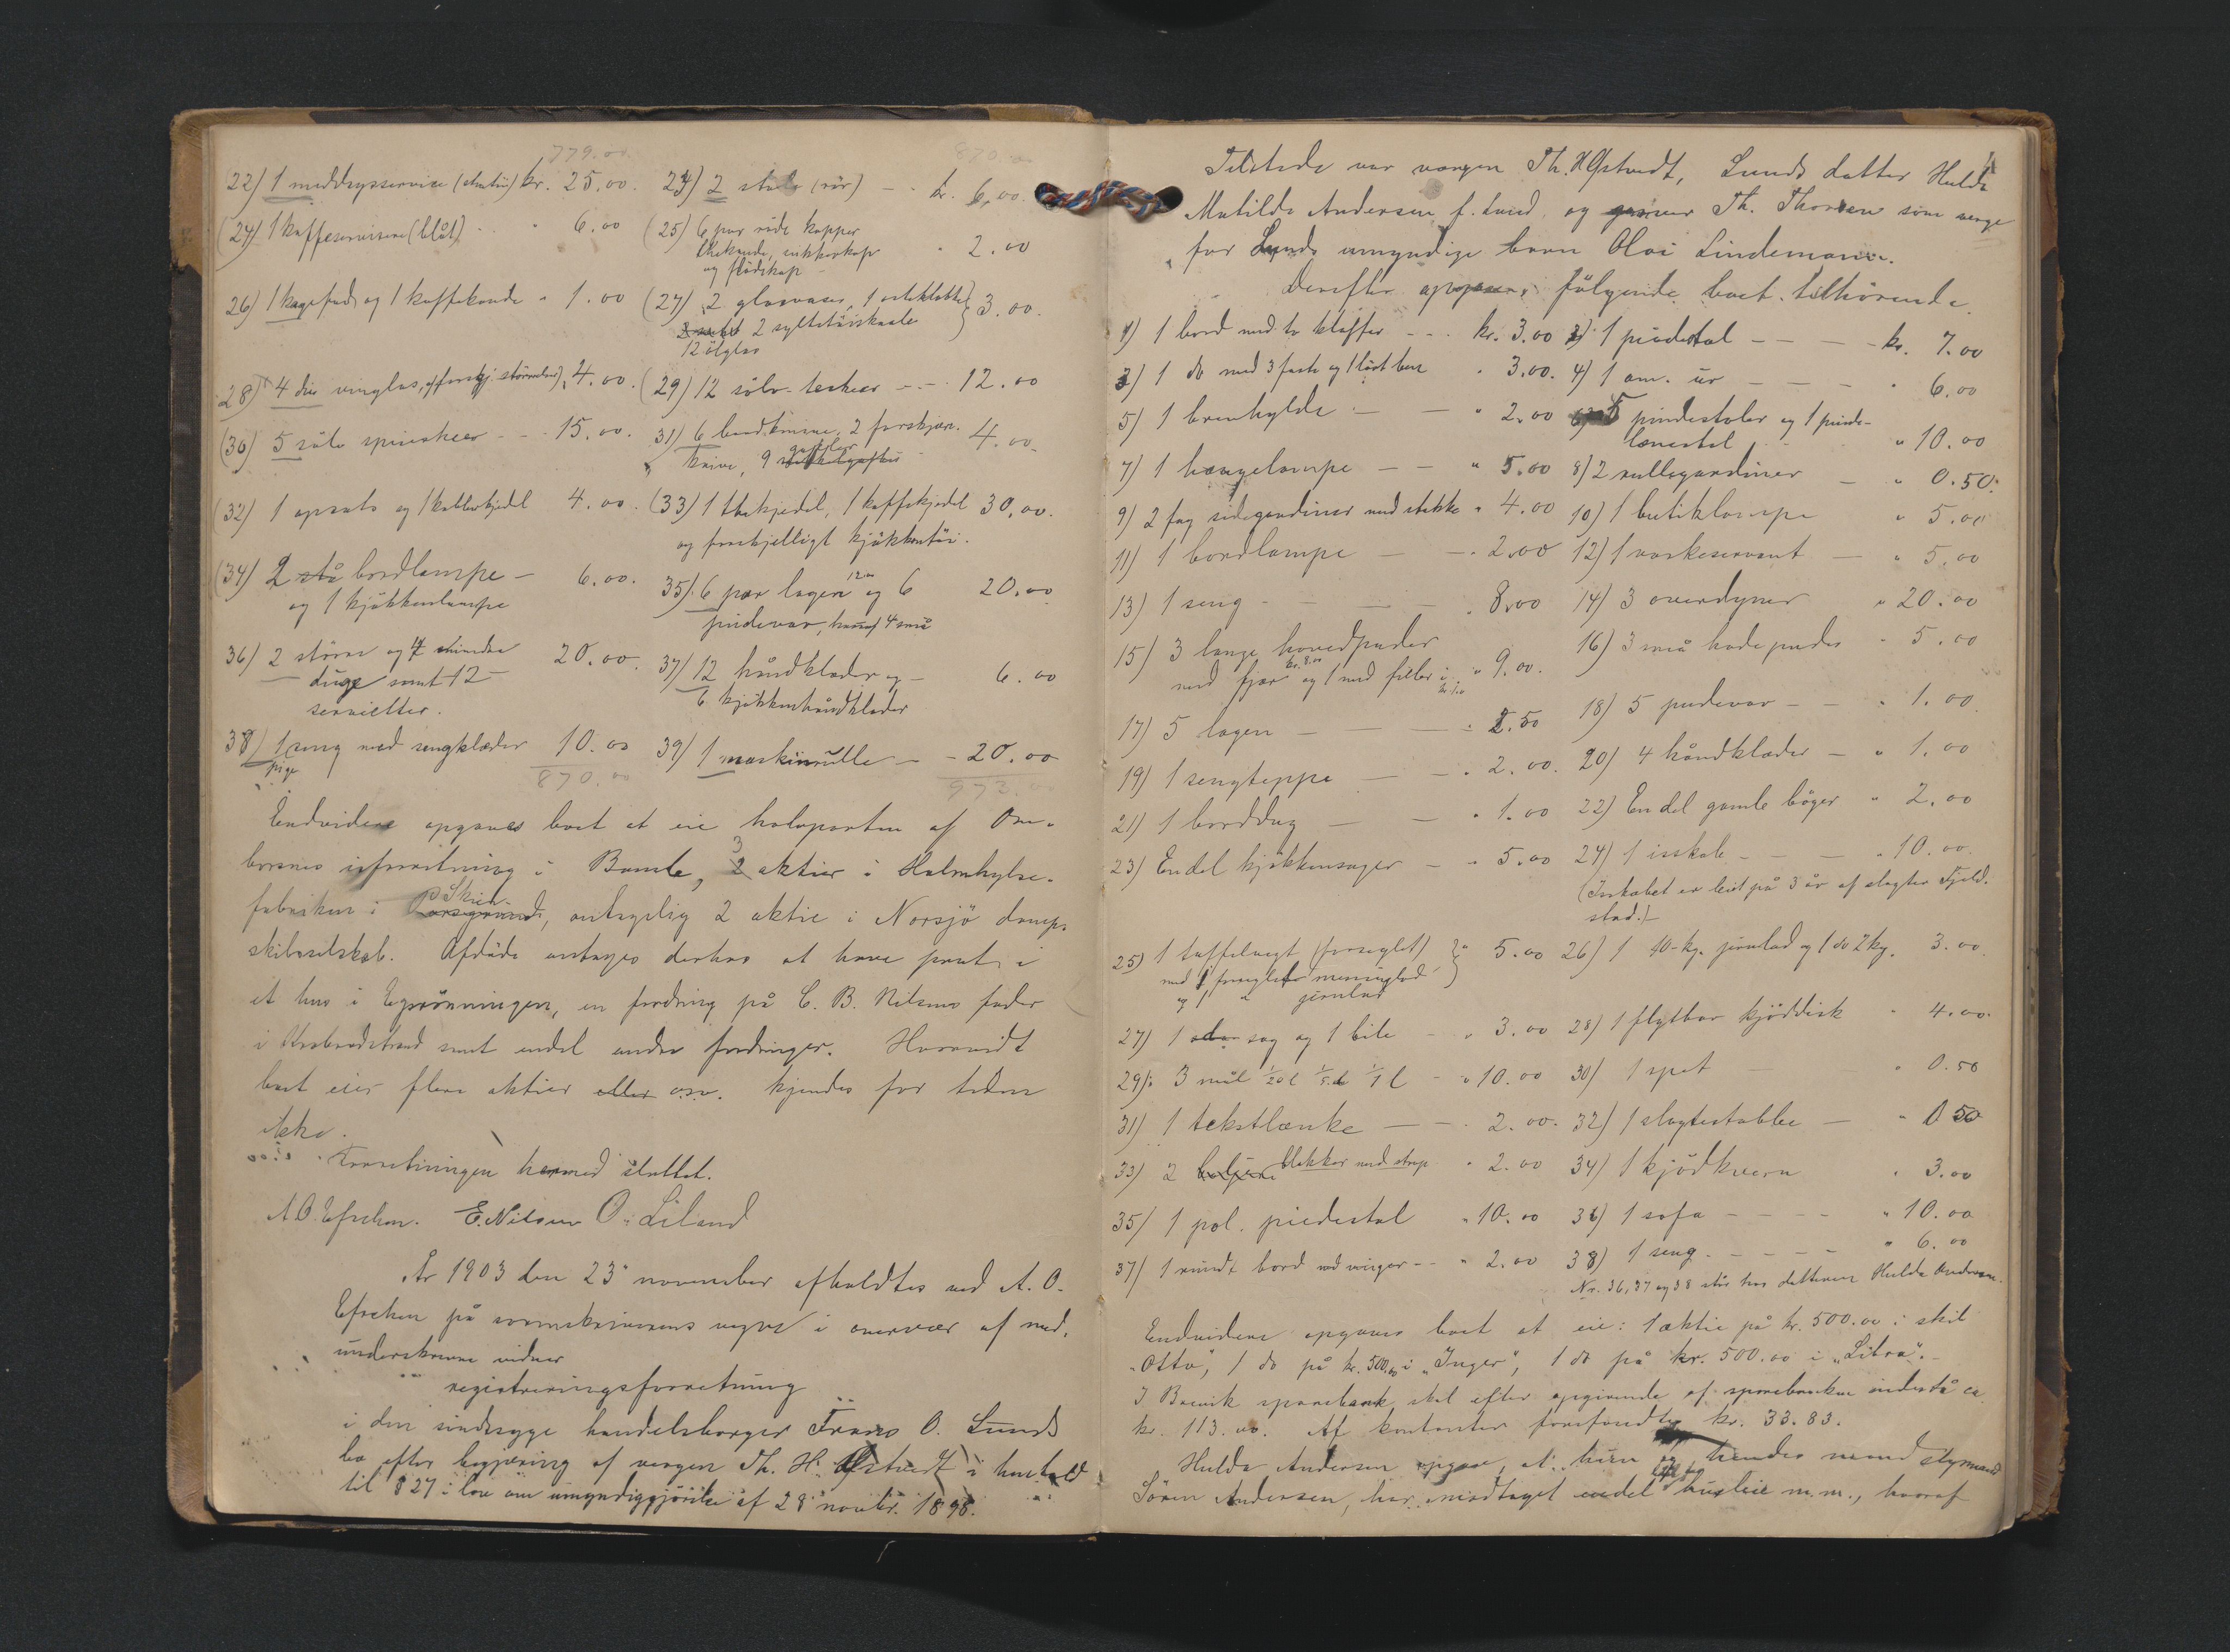 779.00 870.00
22) 1 middagsservice (stentøi) kr. 25.00. 23) 2 stole (rør) - - kr. 6.00.
(24) 1 kaffeservise (blåt) - " 6.00 (25) 6 par røde kopper
thekande, sukkerkop
og flødekop - " 2.00
26) 1 kagefad og 1 kaffekande " 1.00 (27) 2 glasvaser, 1 osteklokke
2 syltetøiskaale
12 ølglas } 3.00.
28) 4 dus vinglas, af forskj. størrelser, 4.00. (29) 12 sølv-teskeer - - 12.00
(30) 5 sølv spiseskeer - - 15.00. 31) 6 bordknive, 2 forskjær.
knive, 9 gafler 4.00
(32) 1 opsats og 1 kobberkjedel 4.00. (33) 1 thekjedel, 1 kaffekjedel 30.00.
og forskjelligt kjøkkentøi.
(34) 2 stå bordlampe - 6.00.
og 1 kjøkkenlampe
35) 6 par lagen 12.00 og 6 20.00
pudevar, hvoraf 4 små
36) 2 større og 4 mindre 20.00.
duge samt 12
servietter.
37) 12 håndklæder og - 6.00
6 kjøkkenhåndklæder
38) 1 pige seng med sengklæder 10.00 39) 1 maskinrulle - - 20.00
870.00 972.00
Endvidere opgaves boet at eie halvparten af Om-
borsnes isforretning i Bamle, 3 aktier i Halmhylse-
fabriken i Skien, antagelig 2 aktie i Norsjø damp-
skibsselskab. Afdøde antages derhos at have part i
et hus i Egrønningen, en fordring på C. B. Nilsens fader
i Krabrødstrand samt endel andre fordringer. Hvorvidt
boet eier flere aktier eller osv. kjendes for tiden
ikke.
Forretningen hermed sluttet.
A. O. Efrekn. E. Nilsen O. Liland
År 1903 den 23 november afholdtes ved A. O.
Efreken på sorenskriverens vegne i overvær af med-
underskrevne vidner
registreringsforretning
i den sindssyge handelsborger Frans O. Lunds
bo efter begjæring af vergen Th. H. Ofstvedt i henhold
til § 27 i lov om umyndiggjørelse af 28 novbr. 1898.
Tilstede var vergen Th. H. Ofstvedt, Lunds datter Hulda
Matilde Andersen f. Lund, og Th. Thorsen som verge
for Lunds umyndige barn Olai Lindemann.
Derefter opgaves følgende boet tilhørende.
1) 1 bord med to klaffer - - - kr. 3.00 2) 1 piedestal - - - kr. 7.00
3) 1 do med 3 faste og 1 løst ben " 3.00. 4) 1 am. ur - - - " 6.00
5) 1 brevhylde - - " 2.00 6) 5 pindestoler og 1 pinde-
lænestol " 10.00
7) 1 hængelampe - - " 5.00 8) 2 rullegardiner - " 0.50.
9) 2 fag sidegardiner med stokke " 4.00 10) 1 butiklampe " 5.00
11) 1 bordlampe - - 2.00 12) 1 vaskeservant - " 5.00
13) 1 seng - - - " 8.00 14) 3 overdyner " 20.00
15) 3 lange hovedpuder
med fjær kr. 8.00 og 1 med filler i kr. 1.00 " 9.00. 16) 3 små hodepuder " 5.00
17) 5 lagen - - - 2.50 18) 5 pudevar - - " 1.00.
19) 1 sengteppe - - " 2.00. 20) 4 håndklæder - " 1.00
21) 1 borddug - - " 1.00 22) En del gamle bøger " 2.00
23) En del kjøkkensager - " 5.00 24) 1 isskab - - - " 10.00.
(Isskabet er leiet på 3 år af slagter Fjeld-
stad.)
25) 1 taffelvægt (forseglet)
med 1 forseglet messinglod
og 1 " jernlod } " 5.00 26) 1 10-kg. jernlod og 1 do 2 kg. 3.00
27) 1 sag og 1 bile " 3.00 28) 1 flytbar kjøddisk " 4.00.
29) 3 mål 1/20 l 1/5 l 1/1 l - " 10.00 30) 1 spet " 0.50
31) 1 tekstlænke - - " 2.00. 32) 1 slagtestabbe - " 0 50
33) 2 blokker med strop " 2.00 34) 1 kjødkværn " 3.00
35) 1 pol. piedestal " 10.00 36) 1 sofa - - - " 10.00
37) 1 rundt bord med vinger - - " 2.00 38) 1 seng - - - " 6.00
No. 36, 37 og 38 står hos datteren Hulda Andersen.
Endvidere opgaves boet at eie: 1 aktie på kr. 500.00 i skib
"Otto", 1 do på kr. 500.00 i "Inger", 1 do på kr. 500.00 i "Libra".
I Brevik sparebank skal efter opgivende af sparebanken indestå ca
kr. 113.00. Af kontanter forefandtes kr. 33.83.
Hulda Andersen opgav, at hun og hendes mand styrmand
Søren Andersen, har modtaget endel husleie m.m., hvoraf